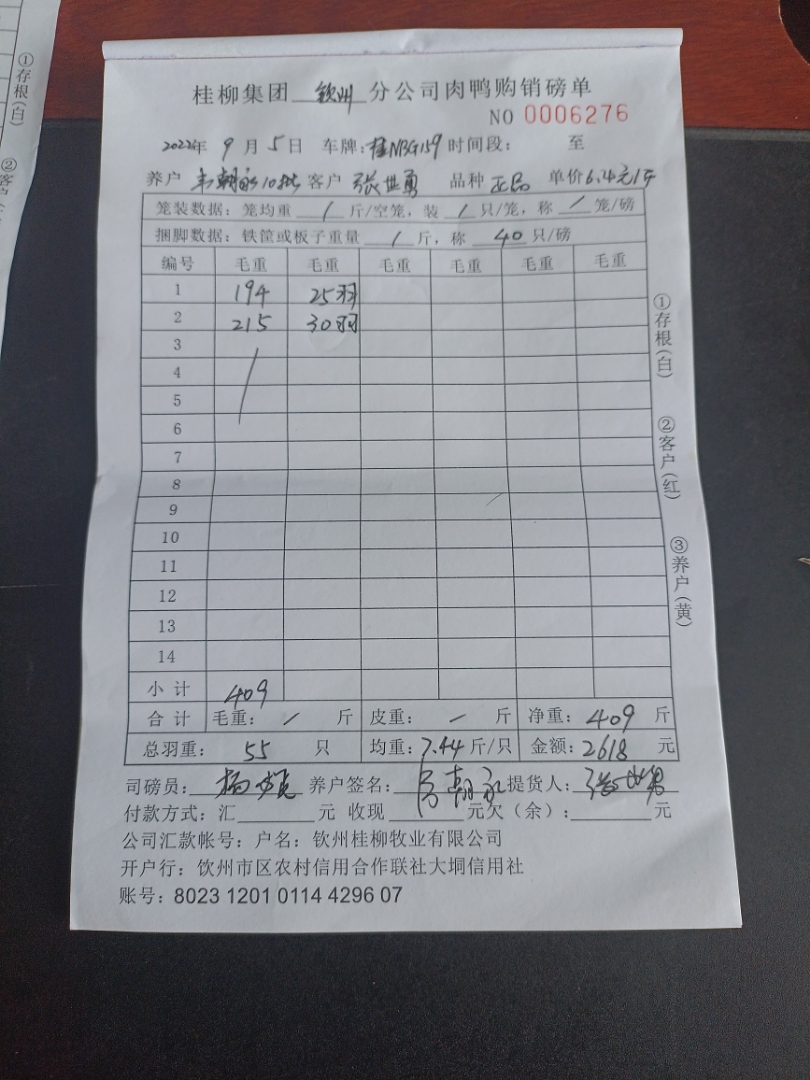 桂柳集团 钦州 分公司肉鸭购销磅单
NO 0006276
2022年 9 月 5 日 车牌:桂NBG159 时间段: 至
养户 韦朝永10批 客户 张世勇 品种 正品 单价6.4元/斤
笼装数据: 笼均重 / 斤/空笼, 装 / 只/笼, 称 / 笼/磅
捆脚数据: 铁筐或板子重量 / 斤, 称 40 只/磅
编号 毛重 毛重 毛重 毛重 毛重 毛重
1 194 25羽
2 215 30羽
3
4
5
6
7
8
9
10
11
12
13
14
小计 409
合计 毛重: / 斤 皮重: / 斤 净重: 409 斤
总羽重: 55 只 均重: 7.44 斤/只 金额: 2618 元
司磅员: 养户签名: 提货人: 张世勇
付款方式: 汇 元 收现 元欠(余): 元
公司汇款帐号: 户名: 钦州桂柳牧业有限公司
开户行: 钦州市区农村信用合作联社大垌信用社
账号: 8023 1201 0114 4296 07
①存根(白)
②客户(红)
③养户(黄)
①存根(白)
②客